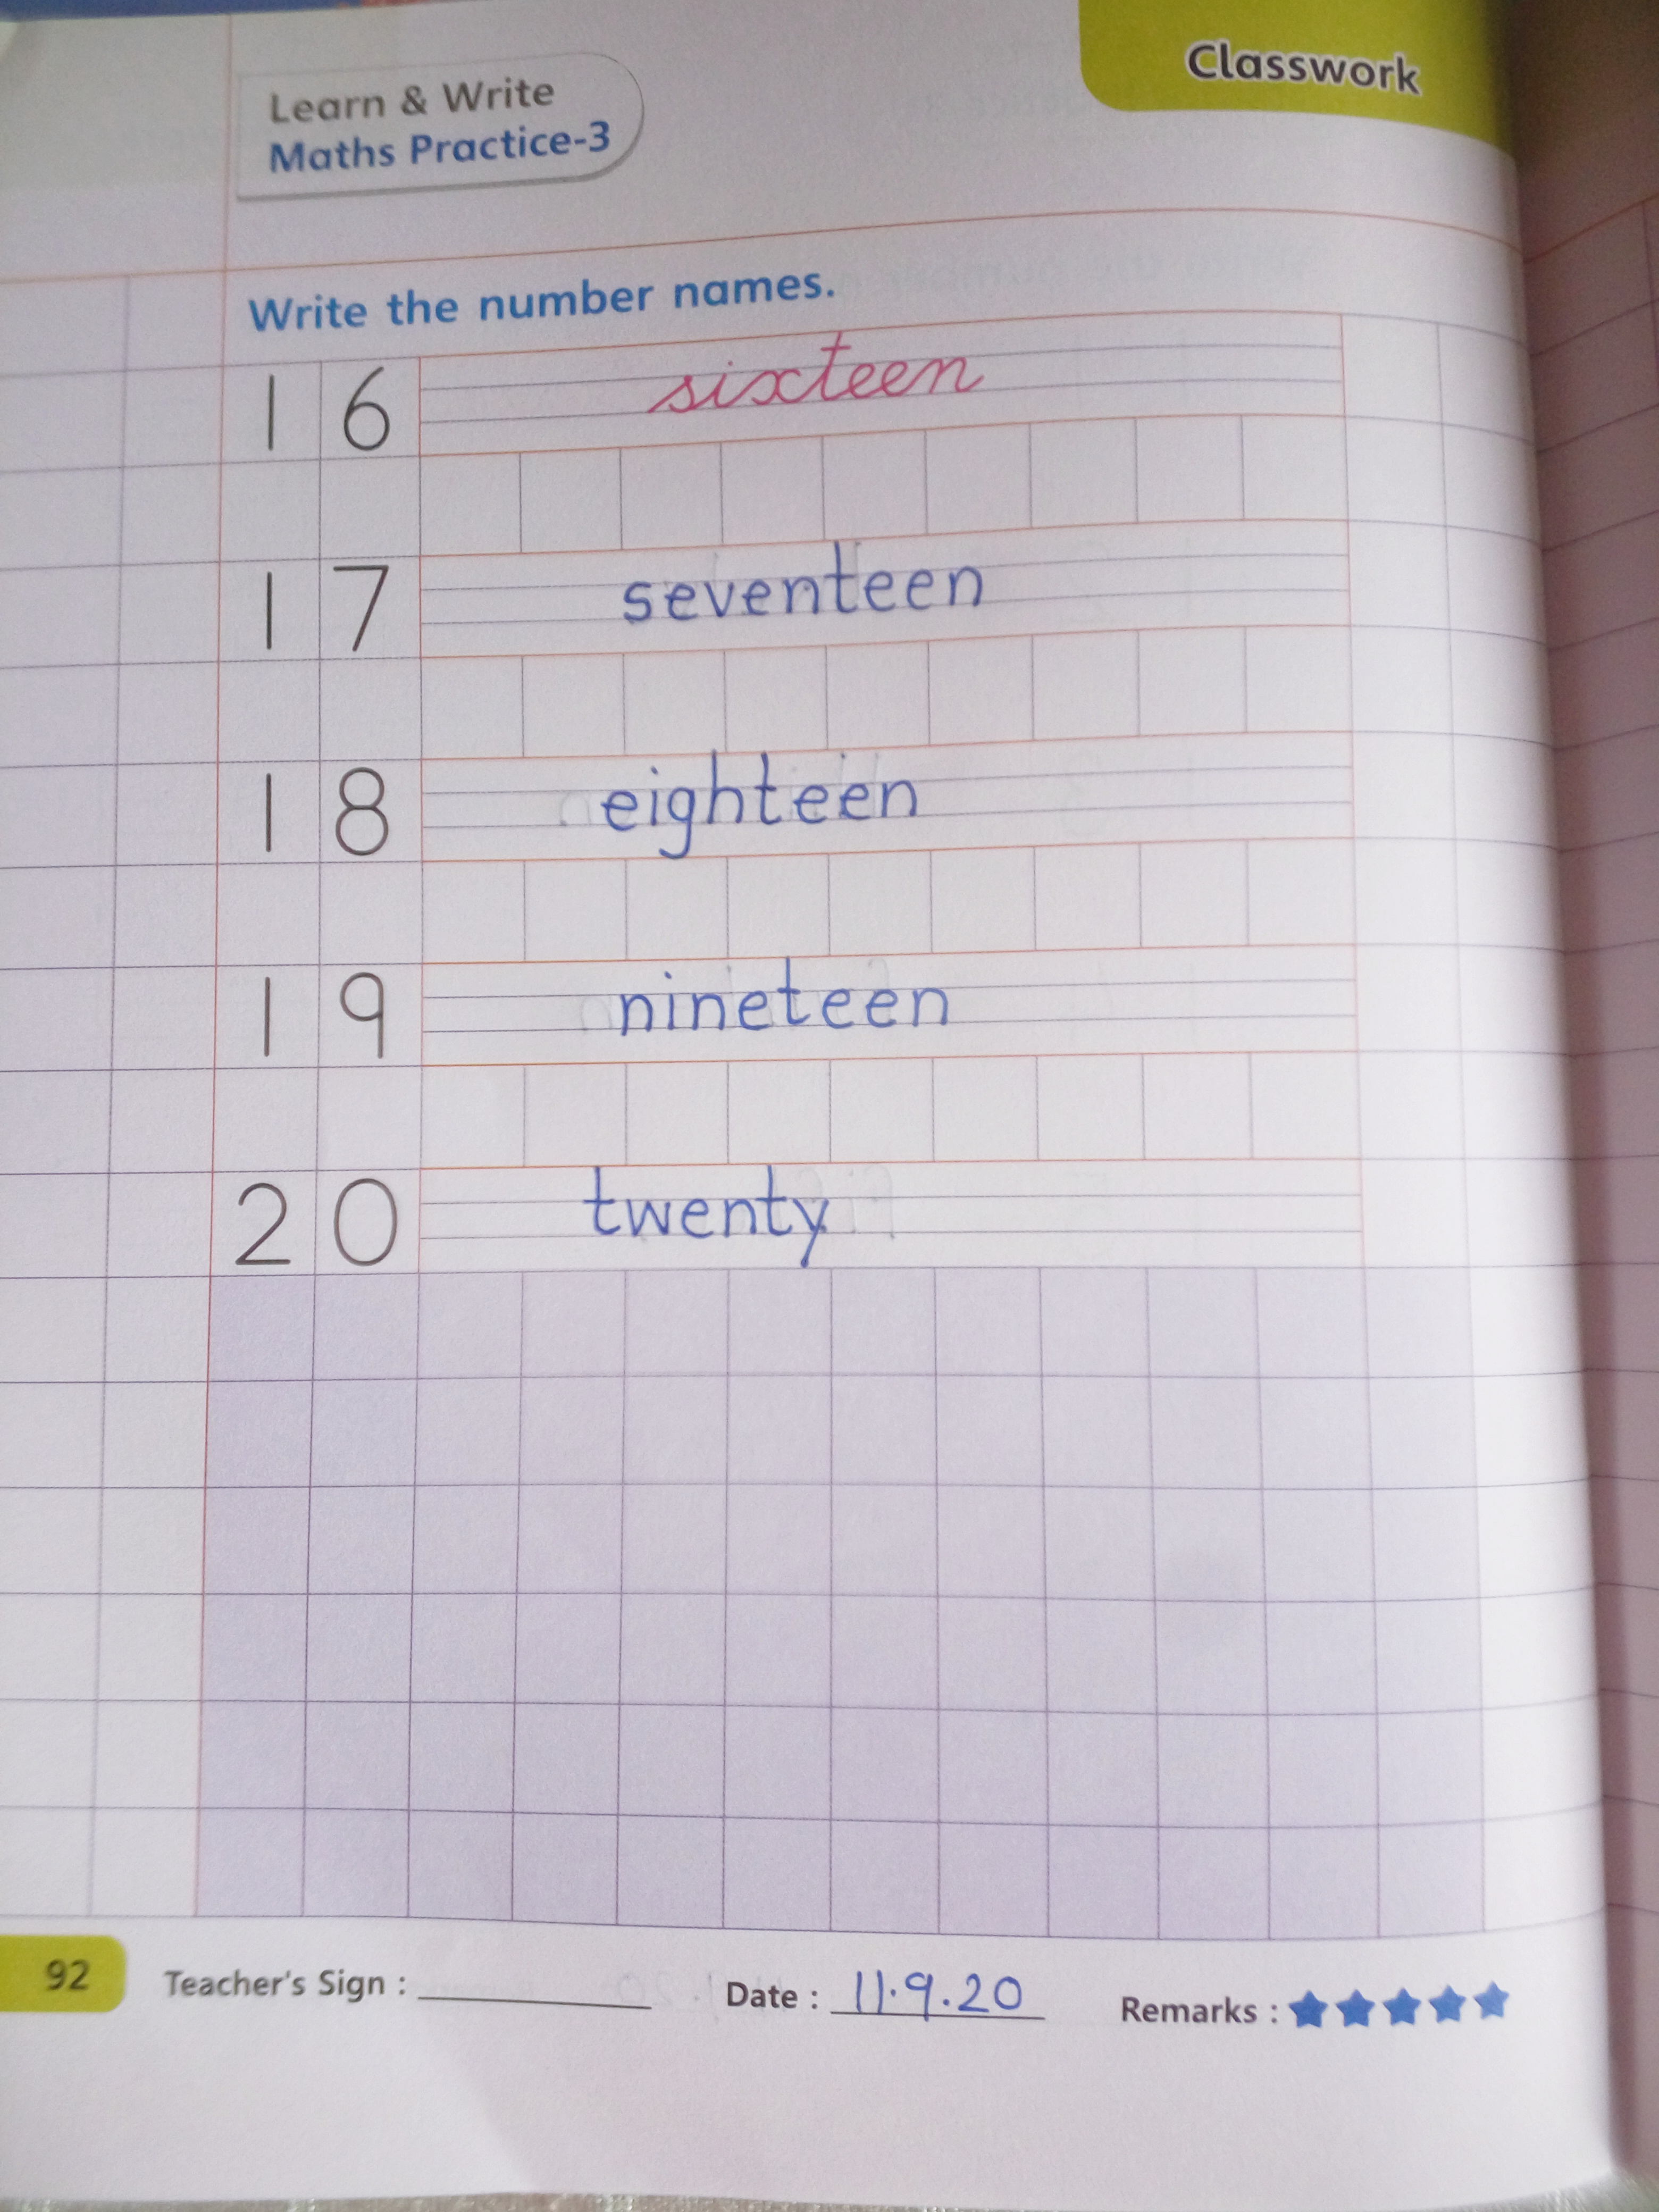 Classwork
Learn & Write
Maths Practice-3
Write the number names.
16 sixteen
17 seventeen
18 eighteen
19 nineteen
20 twenty
92 Teacher's Sign : Date : 11.9.20 Remarks :